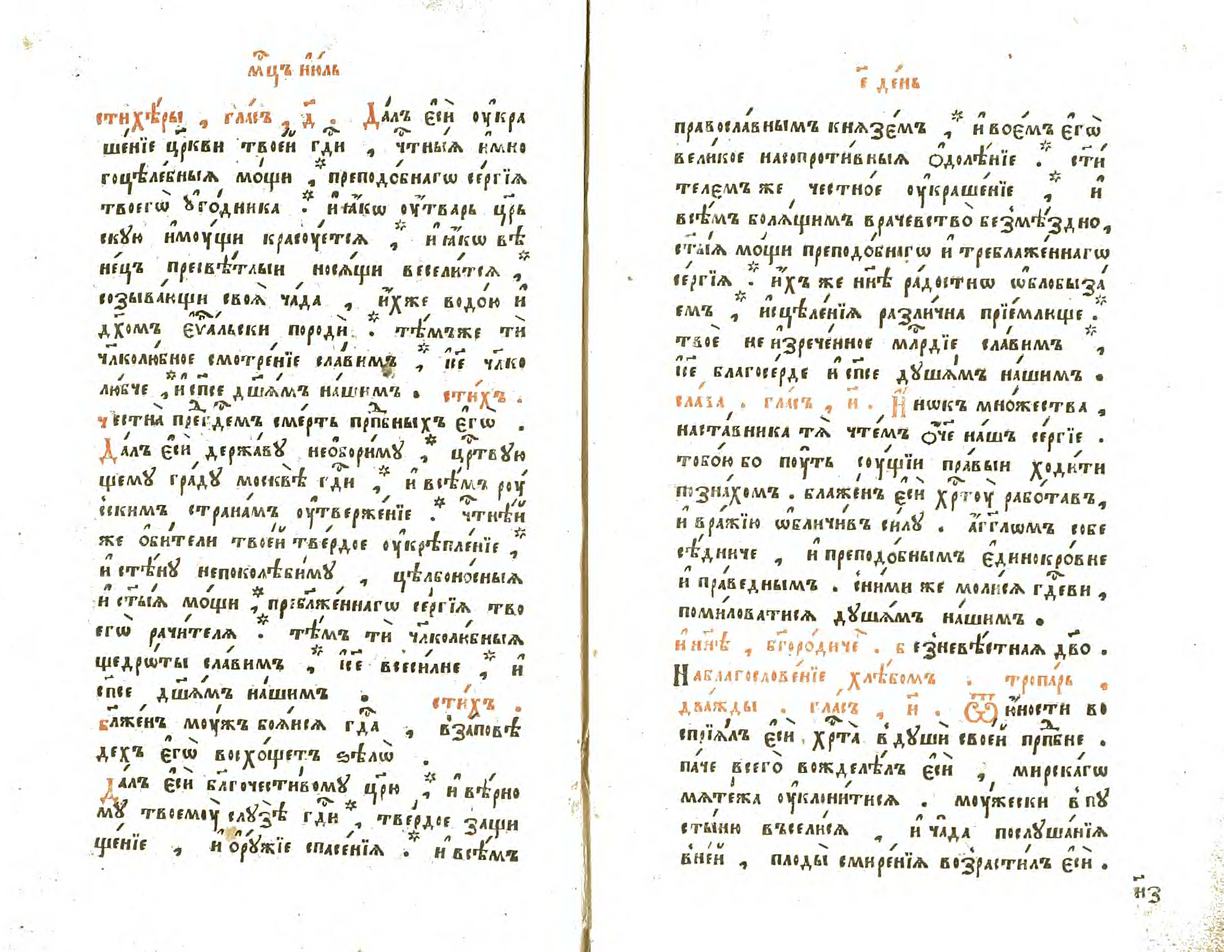 мⷭ҇цъ і҆ю́ль
стихѣ́ры , гла́съ , д҃ . Да́лъ є҆сѝ оу҆кра
ше́нїе цр҃кви твое́й гдⷭ҇и , чтⷭ҇ны́ѧ и҆ мно
гоцѣле́бныѧ мо́щи , * преподо́бнагѡ се́ргїѧ
твоегѡ̀ ᲂу҆го́дника . * и҆ ꙗ҆́кѡ оу҆́тварь цр҃ь
скую и҆мꙋ́щи красꙋ́етсѧ , * и҆ ꙗ҆́кѡ вѣ
не́цъ пресвѣ́тлыи носѧ́щи весели́тсѧ , *
созыва́ющи своѧ̀ ча́да , и҆́хже водо́ю и҆
дх҃омъ є҆ѵⷢ҇а́льски породѝ . * тѣ́мъже тѝ
чл҃колю́бное смотре́нїе сла́вимъ , * і҆с҃е чл҃ко
лю́бче , * и҆ сп҃се дш҃а́мъ на́шимъ . сти́хъ .
честна̀ преⷣ гдⷭ҇емъ сме́рть прпⷣбныхъ є҆гѡ̀ .
Да́лъ є҆сѝ держа́вꙋ необори́мꙋ , * црⷭ҇твꙋю
щемꙋ гра́дꙋ москвѣ̀ гдⷭ҇и , * и҆ всѣ́мъ роу
сі́скимъ страна́мъ оу҆твержє́нїе . * чтⷭ҇нѣ́й
же ѻ҆би́тели твое́й тве́рдое оу҆крѣпле́нїе , *
и҆ стѣ́нꙋ непоколѣби́мꙋ , цѣльбоно́сныѧ
и҆ ст҃ы́ѧ мо́щи , * пребл҃же́ннагѡ се́ргїѧ тво
егѡ̀ рачи́телѧ . * тѣ́мъ тѝ чл҃колю́бныѧ
щедрѡ́ты сла́вимъ , * і҆с҃е всеси́лне , * и҆
сп҃се дш҃а́мъ на́шимъ . сти́хъ .
бл҃же́нъ мꙋ́жъ боѧ́йсѧ гдⷭ҇а , в҆ за́повѣ
дехъ є҆гѡ̀ восхо́щетъ ѕѣлѡ̀ .
Да́лъ є҆сѝ бл҃гочести́вомꙋ цр҃ю̀ , * и҆ вѣ́рно
мꙋ твоемоу̀ слꙋзѣ̀ гдⷭ҇и , * тве́рдое защи
ще́нїе , и҆ ѻ҆рꙋ́жїе спасе́нїѧ . * и҆ всѣ́мъ
є҃ де́нь
правосла́внымъ кнѧзє́мъ , * и҆ во́ємъ є҆гѡ̀
вели́кое насопроти́вныѧ ѻ҆долѣ́нїе . * ст҃и́
телемъ же честно́е оу҆краше́нїе , * и҆
всѣ́мъ болѧ́щимъ врачевство̀ безмѣ́здно ,
ст҃ы́ѧ мо́щи преподо́бнагѡ и҆ требл҃аже́ннагѡ
се́ргїѧ . * и҆́хъ же нн҃ѣ ра́достнѡ ѡ҆блобыза́
емъ , * и҆сцѣле́нїѧ разли́чна прїе́млюще . *
твоѐ неизрече́нное млⷭ҇рдїе сла́вимъ , *
і҆с҃е благосе́рде и҆ сп҃се дꙋша́мъ на́шимъ .
сла́ва . гла́съ , и҃ . И҆́нокъ мно́жества ,
наста́вника тѧ̀ чте́мъ ѻ҆́ч҃е на́шъ се́ргїе .
тобо́ю бо пꙋ́ть сꙋ́щїи пра́выи ходи́ти
позна́хомъ . блаже́нъ є҆сѝ хрⷭ҇тоу̀ рабо́тавъ ,
и҆ вра́жїю ѡ҆бличи́въ си́лꙋ . а҆́гг҃лѡмъ собе
сѣ́дниче , и҆ преподо́бнымъ є҆динокро́вне
и҆ пра́веднымъ . с҆ни́ми же моли́сѧ гдⷭ҇еви ,
поми́ловатисѧ дꙋша́мъ на́шимъ .
и҆ нн҃ѣ , бг҃оро́диче́нъ . безневѣ́стнаѧ дв҃о .
На благослове́нїе хлѣ́бомъ . тропа́рь ,
два́жды . гла́съ , и҃ . Ѿ ю҆́ности во
спрїѧ́лъ є҆сѝ хрⷭ҇та̀ в҆ дꙋшѝ свое́й прпⷣбне .
па́че всегѡ̀ вожделѣ́лъ є҆сѝ , мирска́гѡ
мѧте́жа оу҆клони́тисѧ . мꙋ́жески в҆ пꙋ
сты́ню всели́сѧ , и҆ ча́да послꙋша́нїѧ
в҆не́й , плоды̀ смире́нїѧ возрасти́лъ є҆сѝ .
н҃з